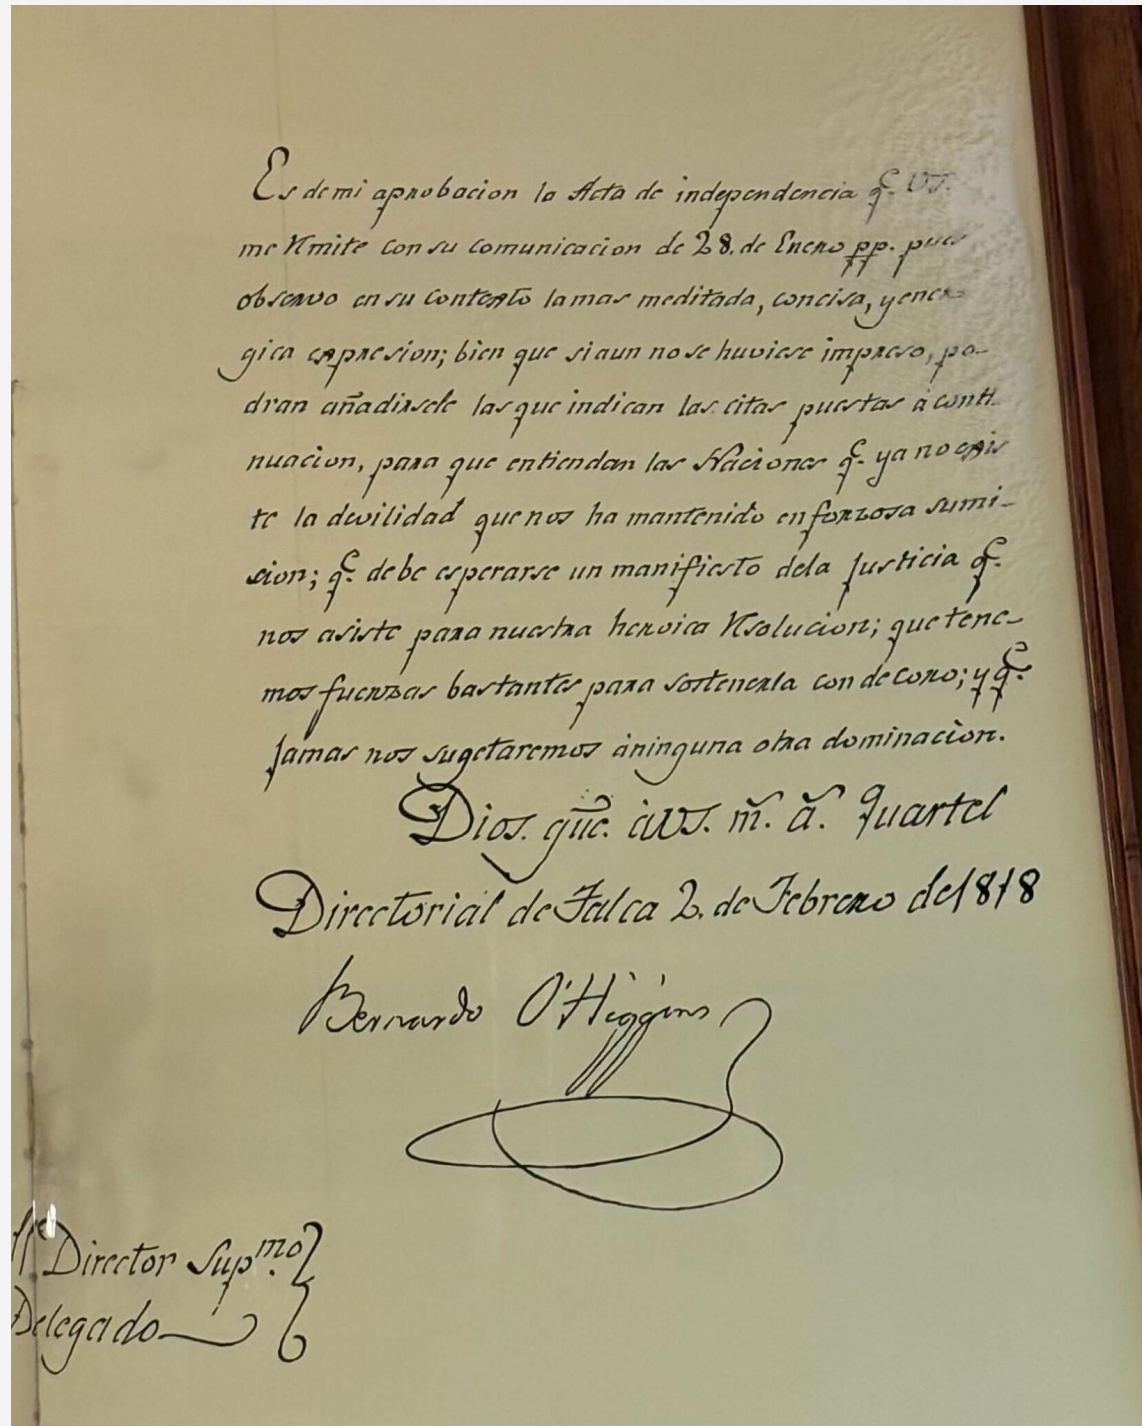 Es de mi aprobacion la Acta de independencia q.e VS.
me Rmite con su comunicacion de 28. de Enero pp. pues
observo en su contexto la mas meditada, concisa, y ener-
gica expresion; bien que si aun no se huviese impreso, po-
dran añadirsele las que indican las citas puestas á conti-
nuacion, para que entiendan las Naciones q.e ya no exis
te la devilidad que nos ha mantenido en forzosa sumi-
sion; q.e debe esperarse un manifiesto dela Justicia q.e
nos asiste para nuestra heroica Rsolucion; que tene-
mos fuerzas bastantes para sostenerla con decoro; y q.e
Jamas nos sugetaremos áninguna otra dominacion.
Dios. gũe. áVS. m̃. ã. Quartel
Directorial de Talca 2. de Febrero de 1818
Bernardo O'Higgins
Director Sup.mo
Delegado